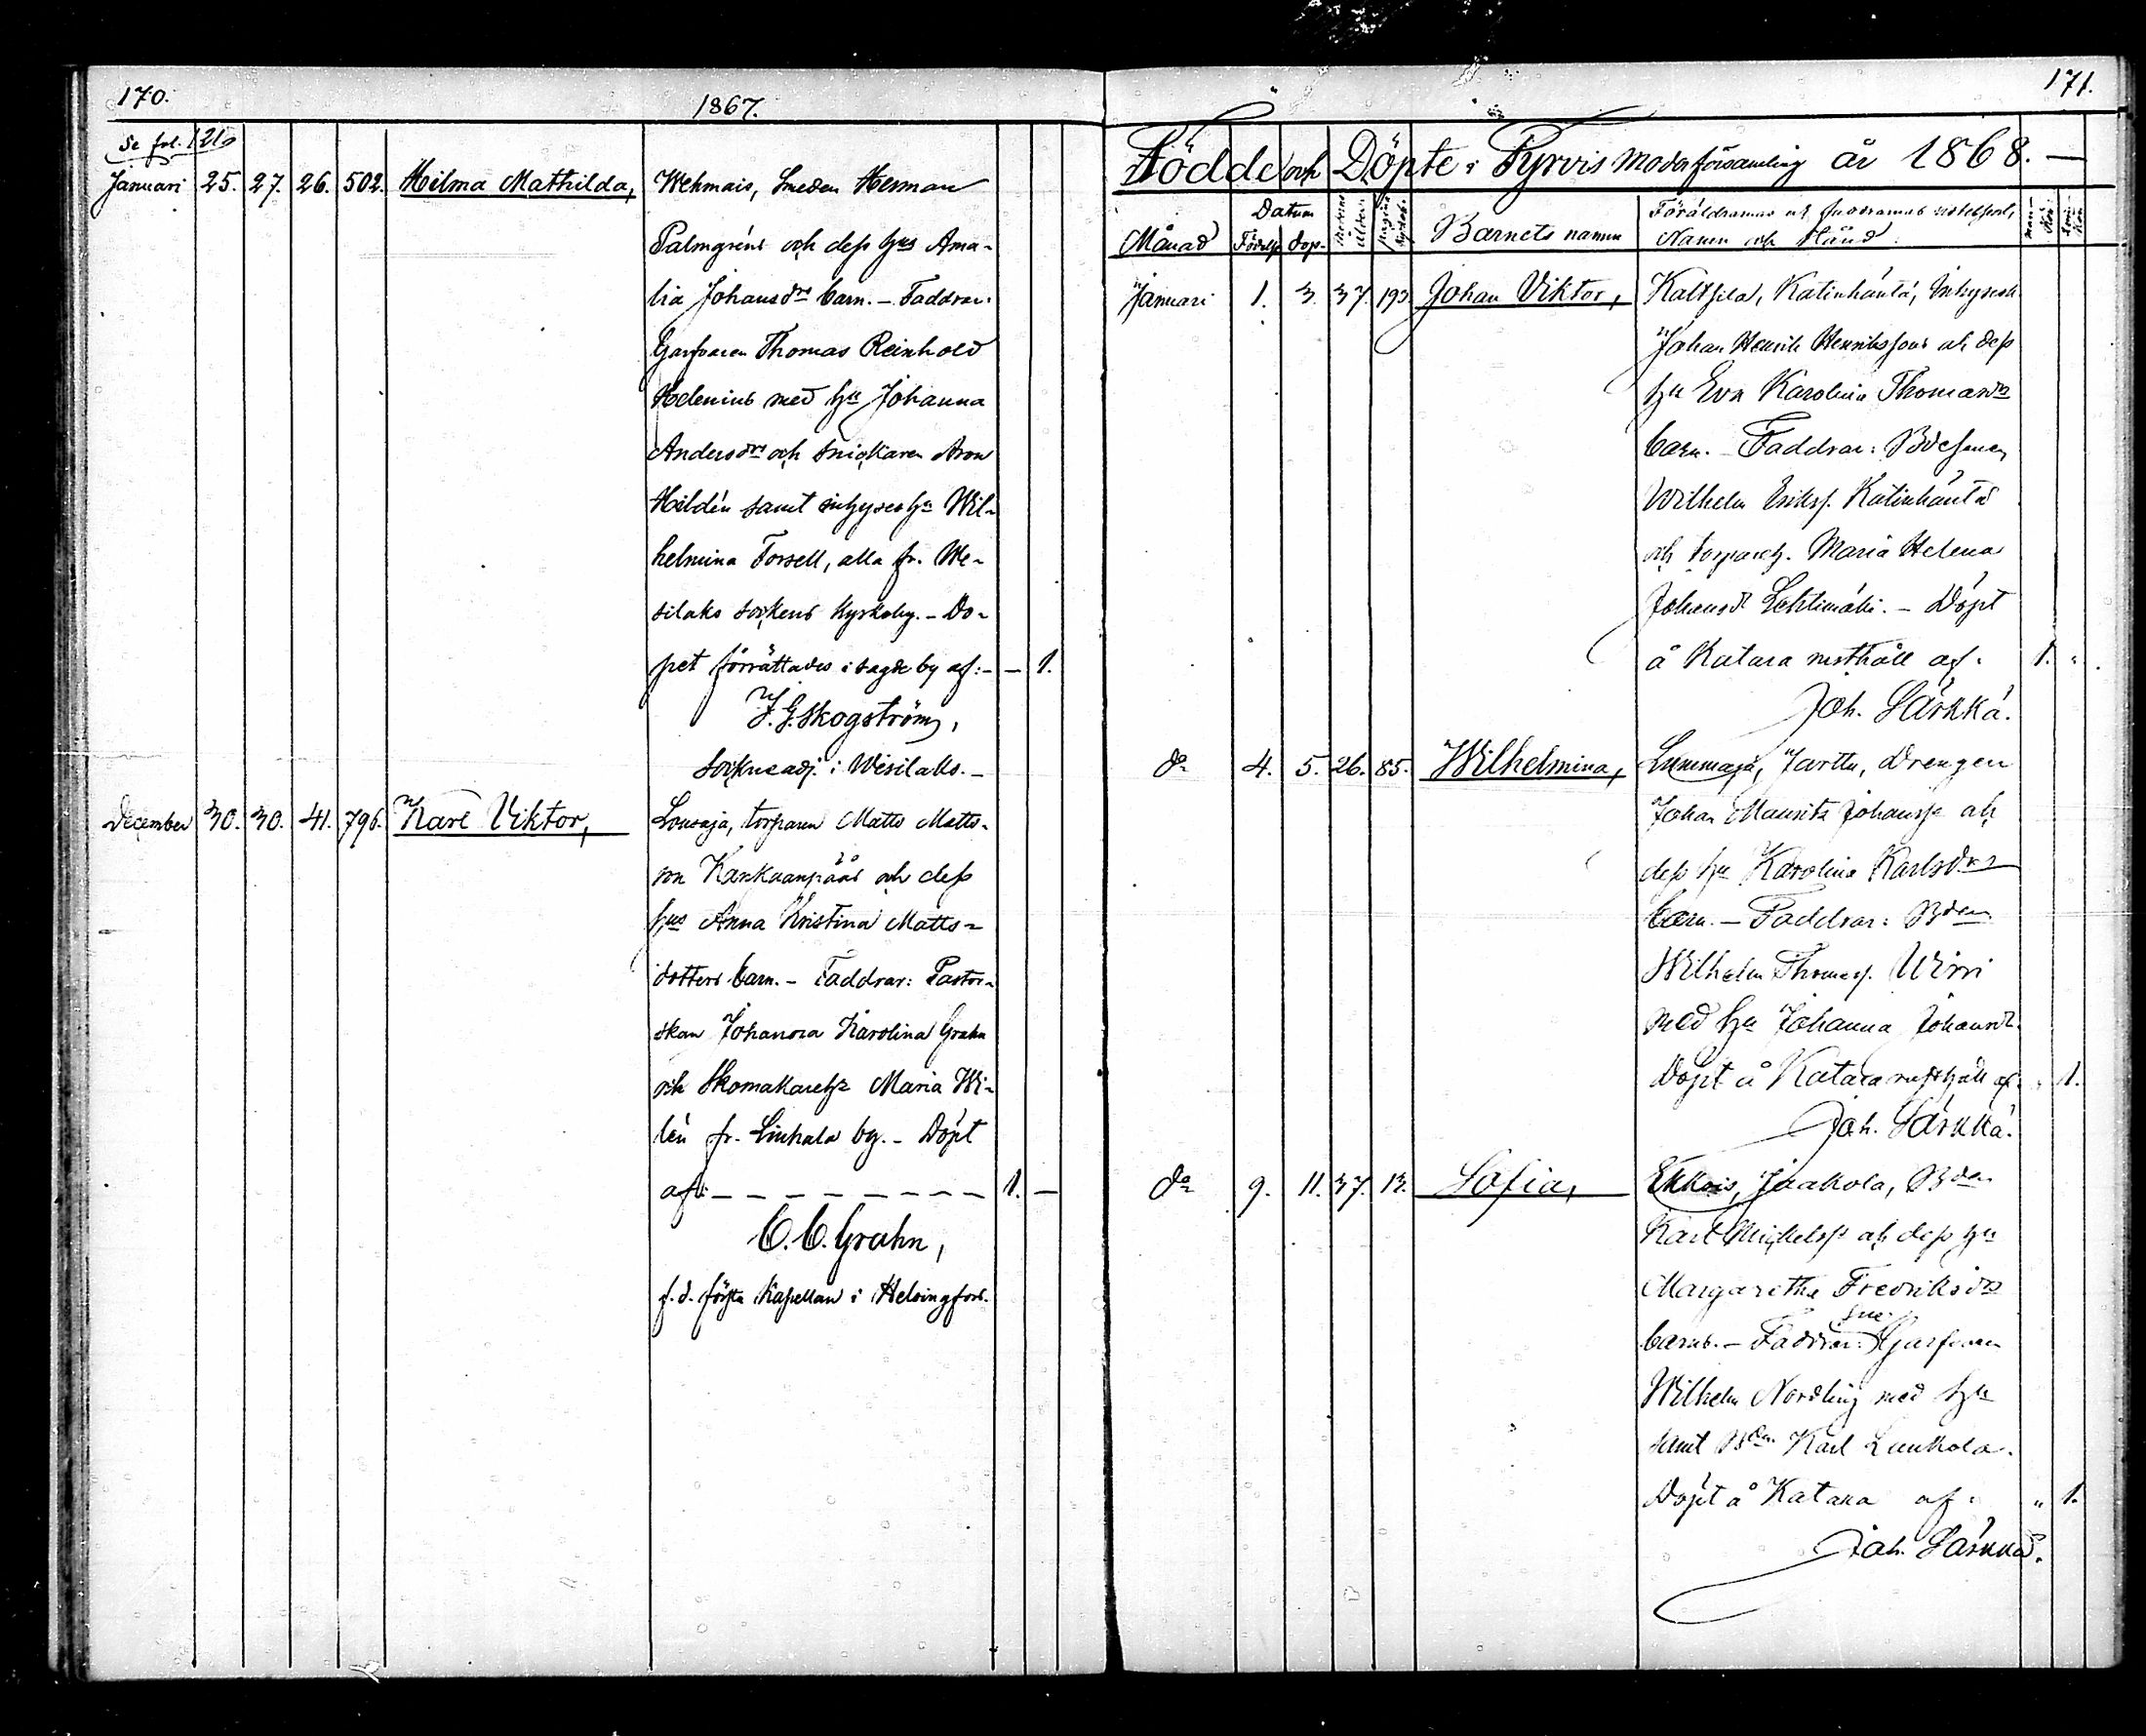 170.
1867.
Se fol. 121
Januari 25. 27. 26. 502. Hilma Mathilda, Wehmais, Smeden Herman
Palmgréns och dess hus Ama-
lia Johansdrs barn. - Faddrar:
Garfvaren Thomas Reinhold
Helenius med hu Johanna
Andersdrs och Snickaren Aron
Hildén samt inhyses hu Wil-
helmina Forsell, alla fr. We-
silaks sockens Kyrkoby. - Do-
pet förrättades i sagde by af: - - 1.
J. G. Skogström,
Sockneadj. i Wesilaks. -
December 30. 30. 41. 796. Karl Viktor, Lousaja, torparen Matts Matts-
son Kankaanpääs och dess
hus Anna Kristina Matts-
dotters barn. - Faddrar: Pastor-
skan Johanna Karolina Grahn
och Skomakareh. Maria Wi-
lén fr. Liuhala by. - Döpt
af: - - - - - - - - 1. -
C. C. Grahn,
f. d. första Kapellan i Helsingfors.
171.
Födde och Döpte i Tyrvis Moderförsamling år 1868. -
Datum
Månad Födelse dop. Moderns ålder Barnets namn Föräldrarnas och Faddrarnas
Namn och Stånd.
Januari 1. 3. 37. 193. Johan Viktor, Kaltsila, Katinhäntä, Inhysesk.
Johan Henrik Henrikssons och dess
hu Eva Karolina Thomasdr
barn. - Faddrar:
Wilhelm Eriks. Katinhäntä
och torpareh. Maria Helena
Johansdr Lehtimäki. - Döpt
å Katara rusthåll af: 1. "
Joh. Särkkä.
do 4. 5. 26. 85. Wilhelmina, Lummaja, Jarttu, Drengen
Johan Mauritz Johanss. och
dess hu Karolina Karlsdrs
barn. - Faddrar: Bden
Wilhelm Thomass. Wirri
med hu Johanna Johansdr.
Döpt å Katara rusthåll af: " 1.
Joh. Särkkä.
do 9. 11. 37. 13. Sofia, Ekkois, Jaakola, Bden
Karl Michelss. och dess hu
Margaretha Fredriksdrs
barn. - Faddrar: Garfvaren
Wilhelm Nordling med hu
samt Bden Karl Laukola.
Döpt å Katara af: " 1.
Joh. Särkkä.